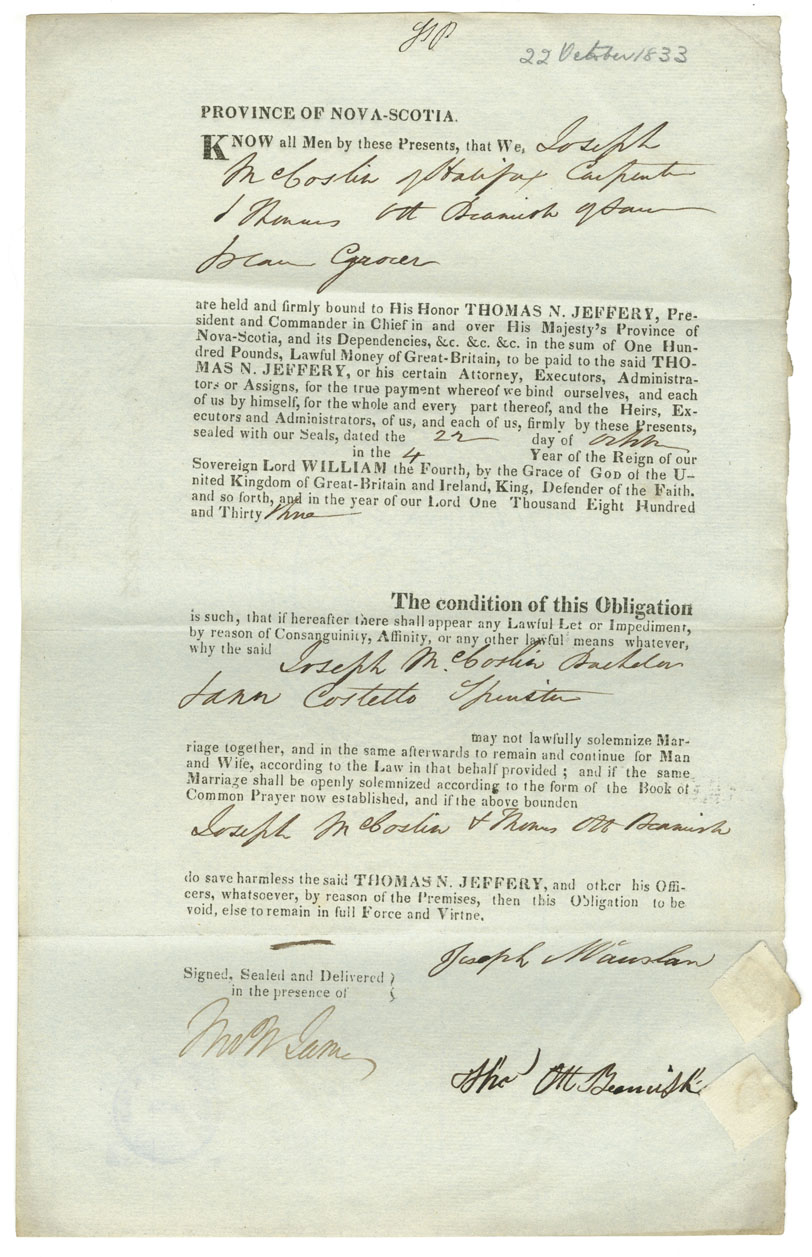 22 October 1833
PROVINCE OF NOVA-SCOTIA.
KNOW all Men by these Presents, that We, Joseph
McCoslin of Halifax Carpenter
& Thomas Ott Beamish of same
place Grocer
are held and firmly bound to His Honor THOMAS N. JEFFERY, Pre-
sident and Commander in Chief in and over His Majesty's Province of
Nova-Scotia, and its Dependencies, &c. &c. &c. in the sum of One Hun-
dred Pounds, Lawful Money of Great-Britain, to be paid to the said THO-
MAS N. JEFFERY, or his certain Attorney, Executors, Administra-
tors or Assigns, for the true payment whereof we bind ourselves, and each
of us by himself, for the whole and every part thereof, and the Heirs, Ex-
ecutors and Administrators, of us, and each of us, firmly by these Presents,
sealed with our Seals, dated the 22 day of October
in the 4 Year of the Reign of our
Sovereign Lord WILLIAM the Fourth, by the Grace of GOD of the U-
nited Kingdom of Great-Britain and Ireland, King, Defender of the Faith.
and so forth, and in the year of our Lord One Thousand Eight Hundred
and Thirty three
The condition of this Obligation
is such, that if hereafter there shall appear any Lawful Let or Impediment,
by reason of Consanguinity, Affinity, or any other lawful means whatever,
why the said Joseph McCoslin Bachelor
& Ann Costello Spinster
may not lawfully solemnize Mar-
riage together, and in the same afterwards to remain and continue for Man
and Wife, according to the Law in that behalf provided ; and if the same
Marriage shall be openly solemnized according to the form of the Book of
Common Prayer now established, and if the above bounden
Joseph McCoslin & Thomas Ott Beamish
do save harmless the said THOMAS N. JEFFERY, and other his Offi-
cers, whatsoever, by reason of the Premises, then this Obligation to be
void, else to remain in full Force and Virtne.
Joseph
Signed, Sealed and Delivered }
in the presence of }
Thos W James
Thos Ott Beamish